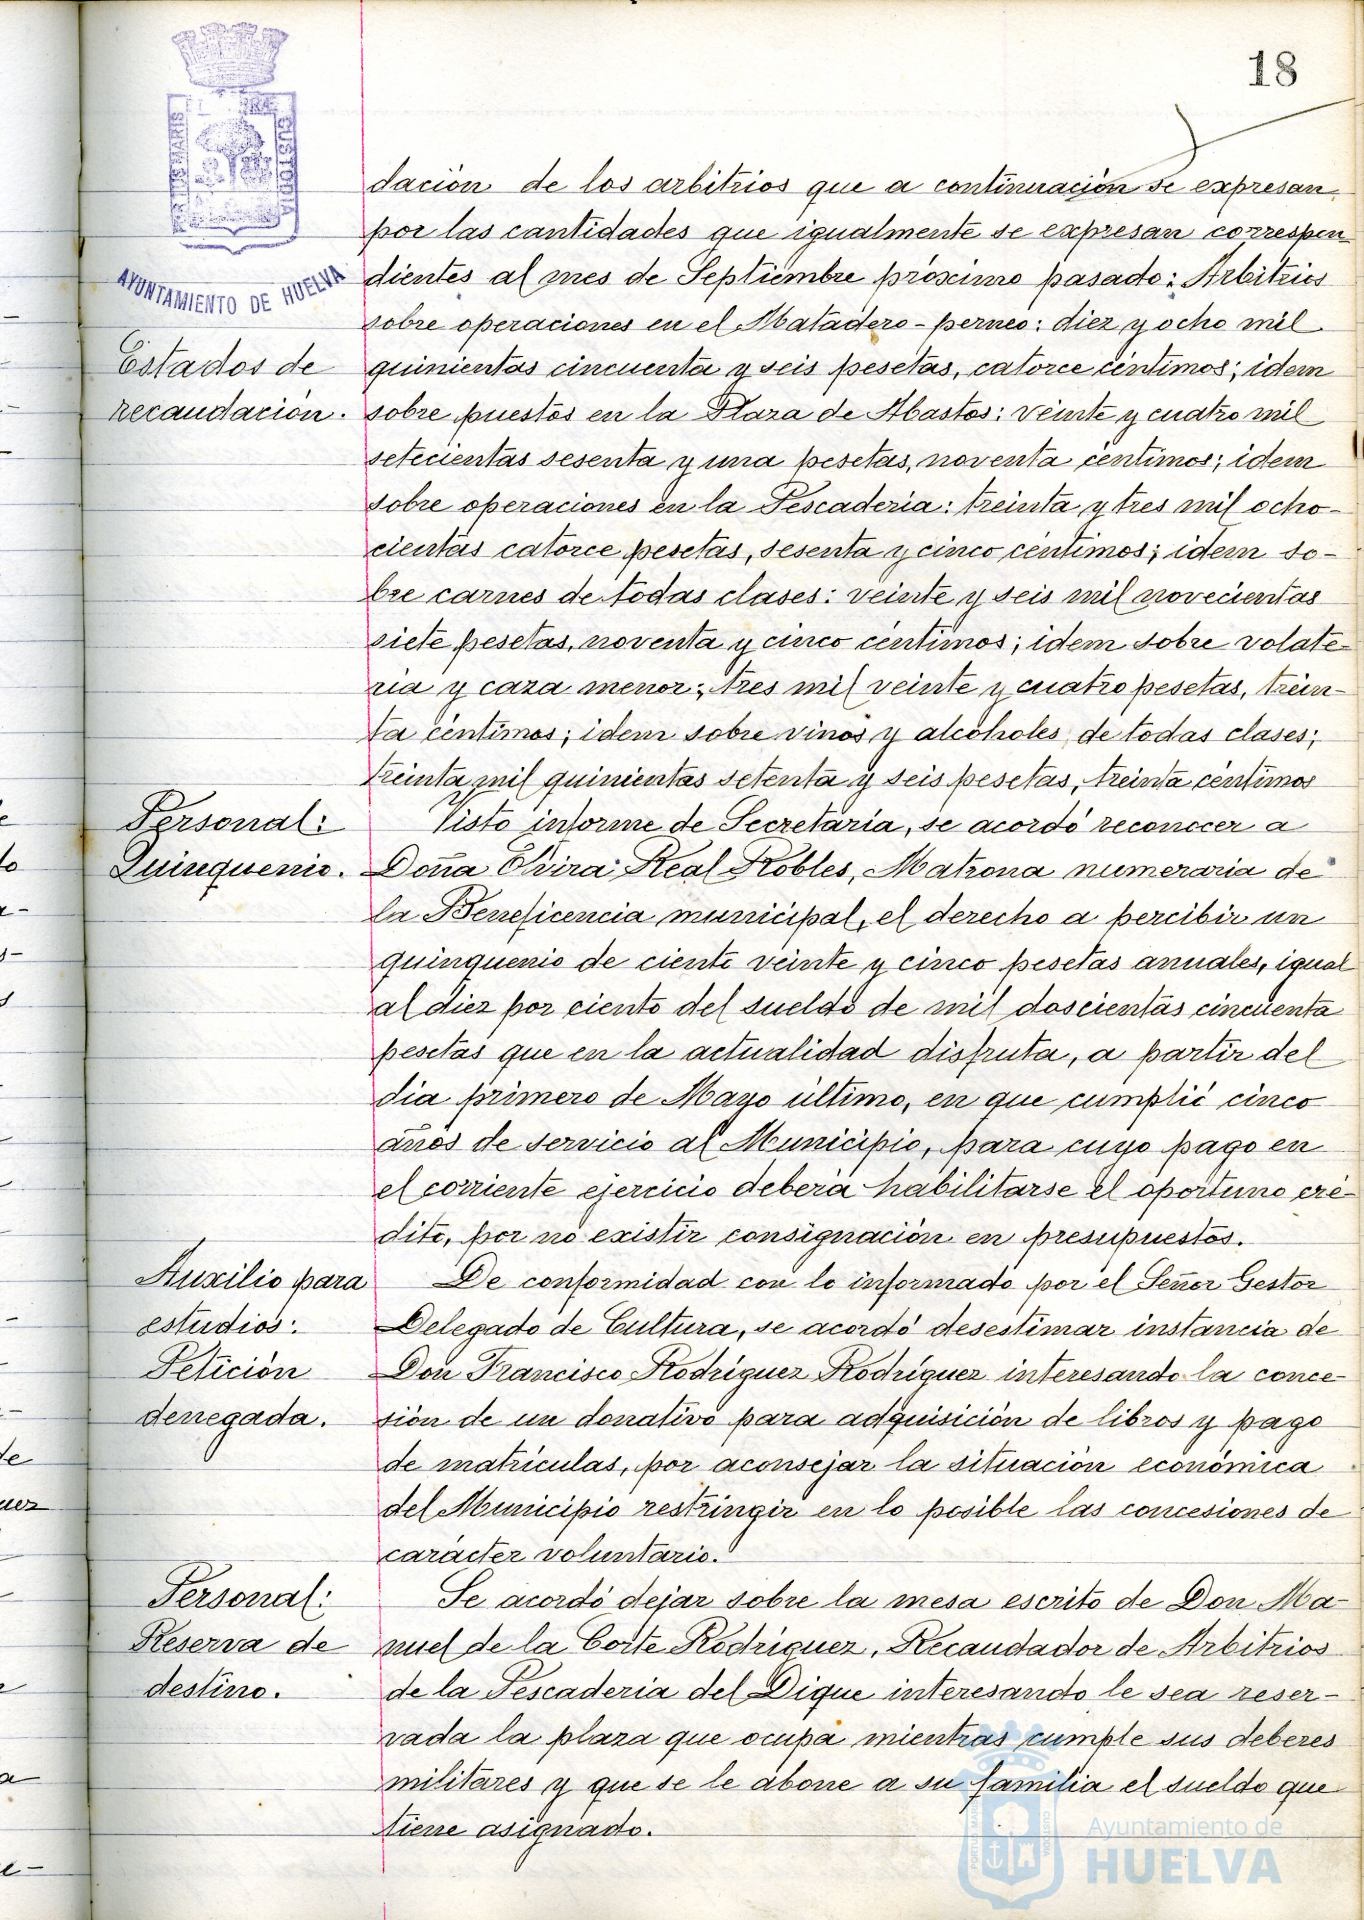 18
PORTUS MARIS
CUSTODIA
AYUNTAMIENTO DE HUELVA
dación de los arbitrios que a continuación se expresan
por las cantidades que igualmente se expresan correspon-
dientes al mes de Septiembre próximo pasado: Arbitrios
sobre operaciones en el Matadero-perneo: diez y ocho mil
Estados de
recaudación.
quinientas cincuenta y seis pesetas, catorce céntimos; idem
sobre puestos en la Plaza de Abastos: veinte y cuatro mil
setecientas sesenta y una pesetas, noventa céntimos; idem
sobre operaciones en la Pescaderia: treinta y tres mil ocho-
cientas catorce pesetas, sesenta y cinco céntimos; idem so-
bre carnes de todas clases: veinte y seis mil novecientas
siete pesetas, noventa y cinco céntimos; idem sobre volate-
ria y caza menor: tres mil veinte y cuatro pesetas, trein-
ta céntimos; idem sobre vinos y alcoholes de todas clases;
treinta mil quinientas setenta y seis pesetas, treinta céntimos
Personal:
Quinquenio.
Visto informe de Secretaría, se acordó reconocer a
Doña Elvira Real Robles, Matrona numeraria de
la Beneficencia municipal, el derecho a percibir un
quinquenio de ciento veinte y cinco pesetas anuales, igual
al diez por ciento del sueldo de mil doscientas cincuenta
pesetas que en la actualidad disfruta, a partir del
dia primero de Mayo último, en que cumplió cinco
años de servicio al Municipio, para cuyo pago en
el corriente ejercicio deberá habilitarse el oportuno cré-
dito, por no existir consignación en presupuestos.
Auxilio para
estudios:
Petición
denegada.
De conformidad con lo informado por el Señor Gestor
Delegado de Cultura, se acordó desestimar instancia de
Don Francisco Rodríguez Rodríguez interesando la conce-
sión de un donativo para adquisición de libros y pago
de matrículas, por aconsejar la situación económica
del Municipio restringir en lo posible las concesiones de
carácter voluntario.
Personal:
Reserva de
destino.
Se acordó dejar sobre la mesa escrito de Don Ma-
nuel de la Corte Rodríguez, Recaudador de Arbitrios
de la Pescaderia del Dique interesando le sea reser-
vada la plaza que ocupa mientras cumple sus deberes
militares y que se le abone a su familia el sueldo que
tiene asignado.
Ayuntamiento de
HUELVA